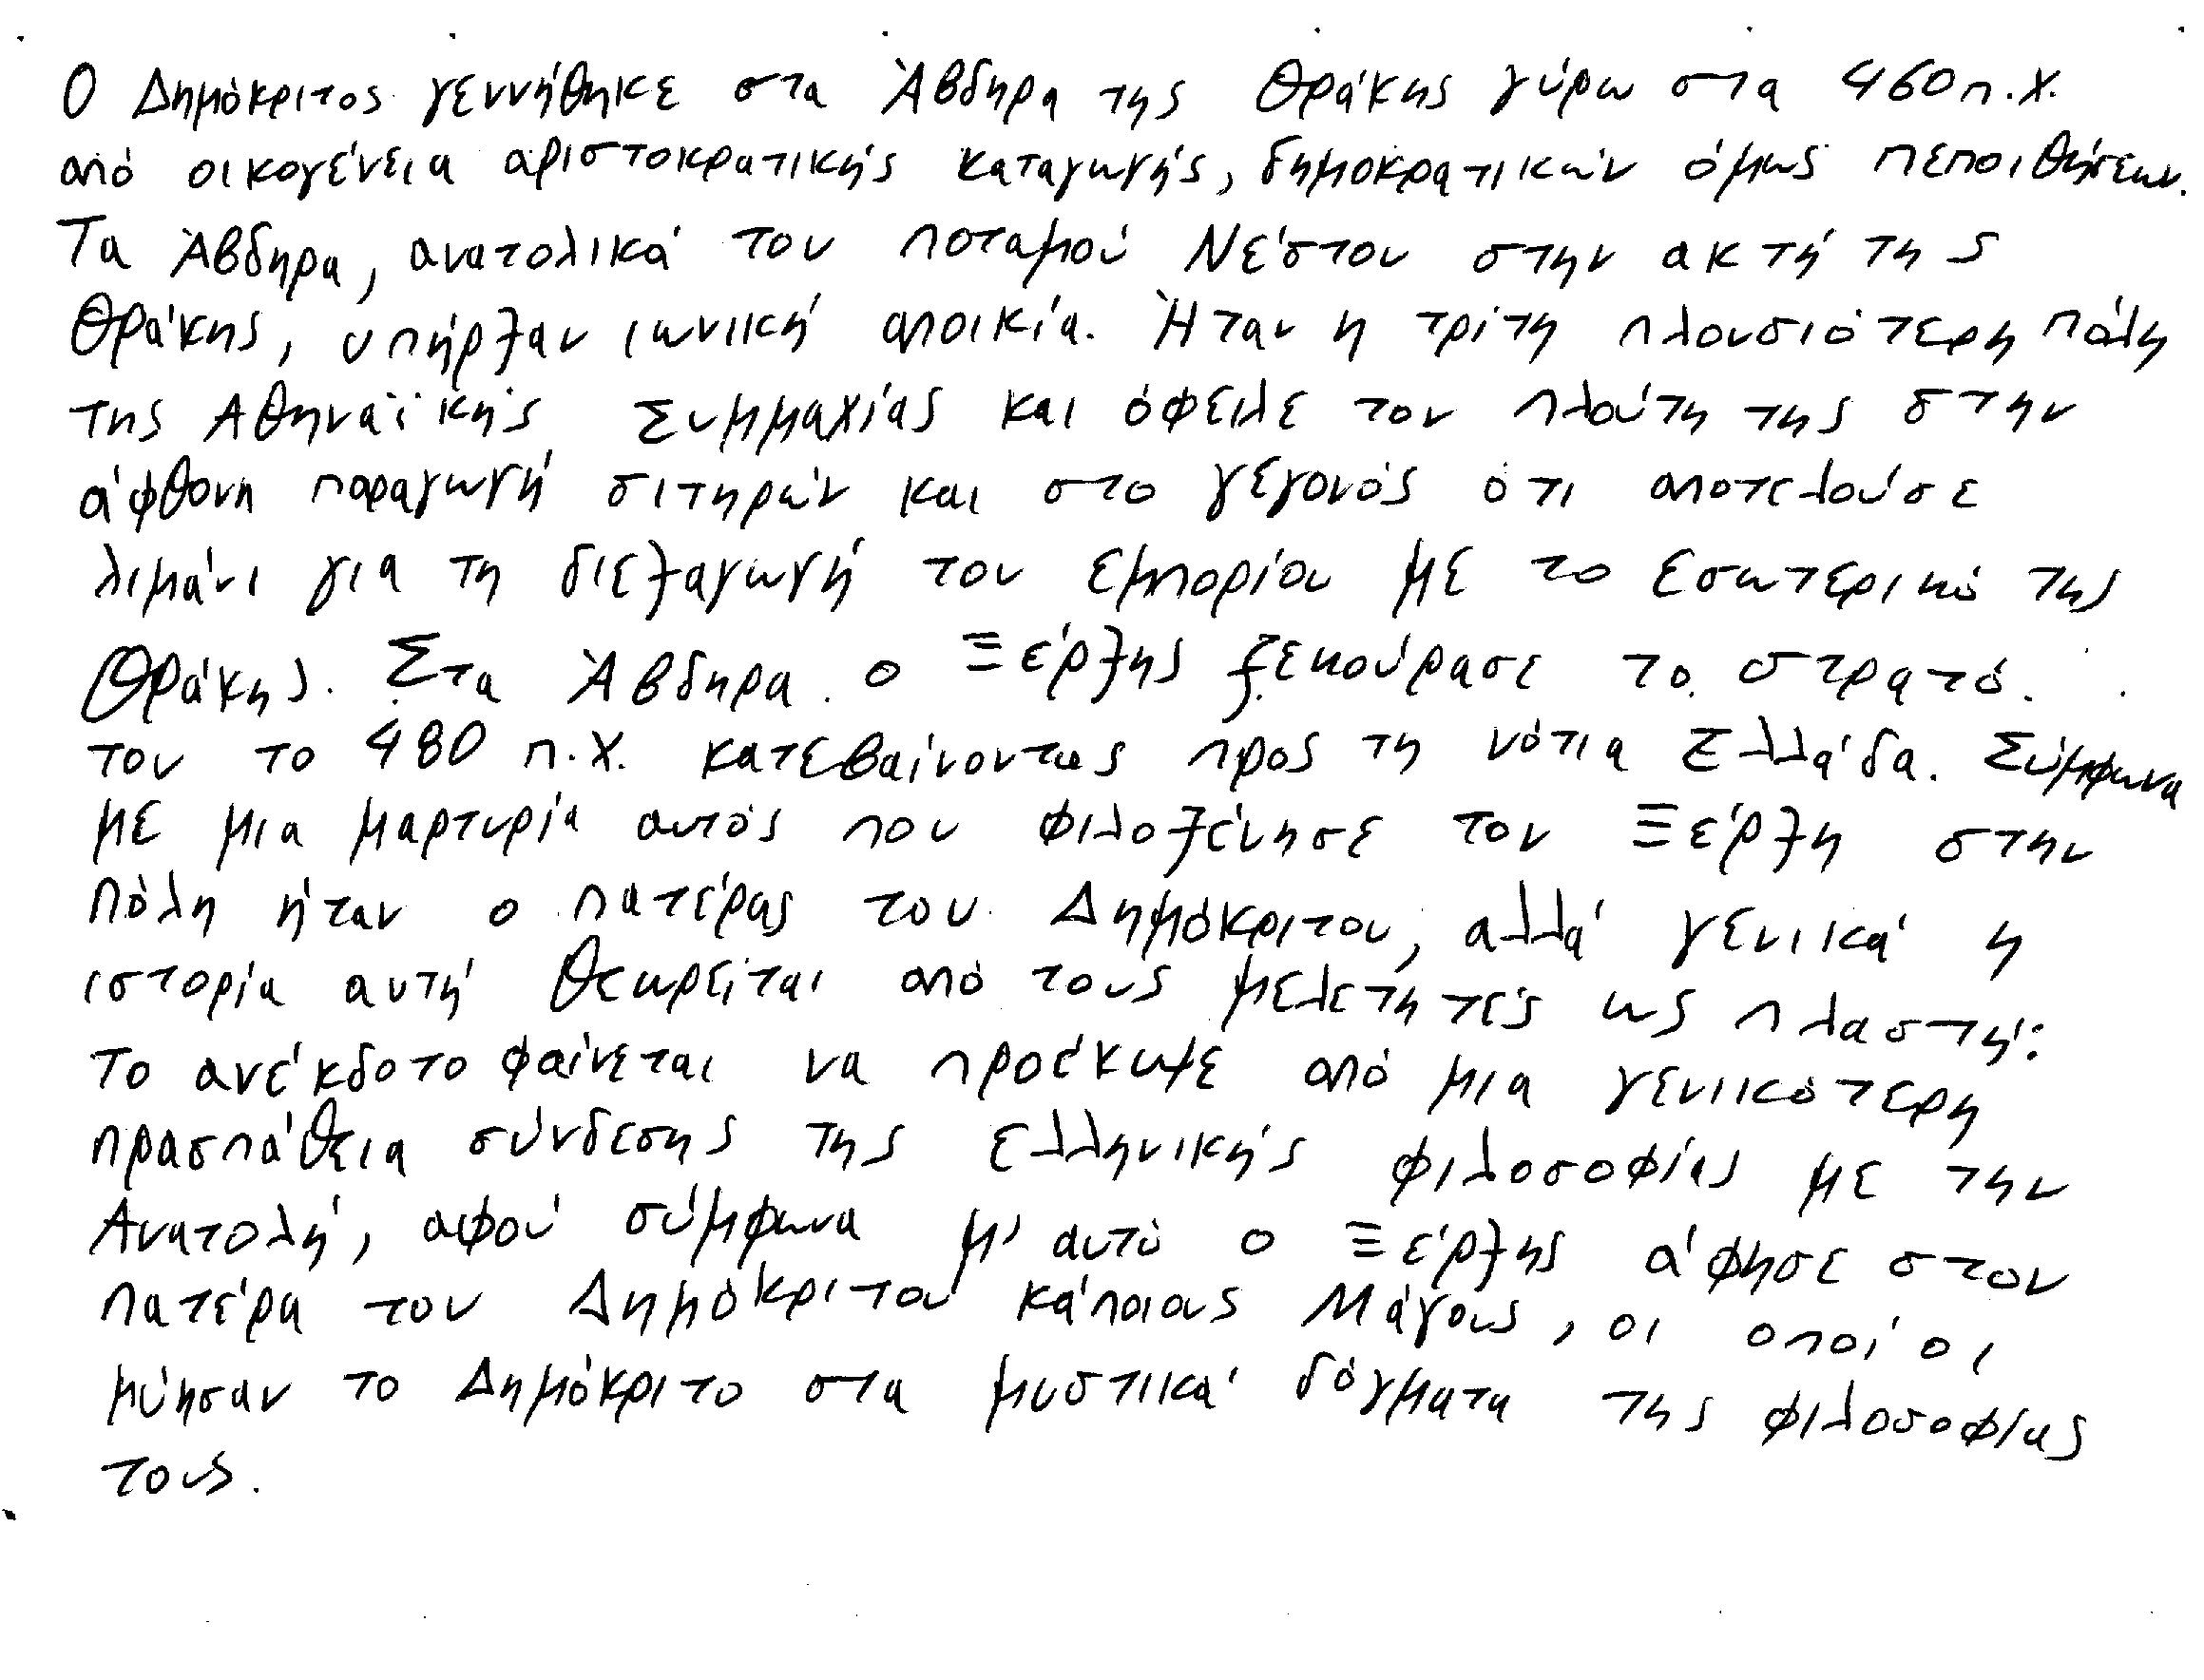 Ο Δημόκριτος γεννήθηκε στα Άβδηρα της Θράκης γύρω στα 460 π.Χ.
από οικογένεια αριστοκρατικής καταγωγής, δημοκρατικών όμως πεποιθήσεων.
Τα Άβδηρα, ανατολικά του ποταμού Νέστου στην ακτή της
Θράκης, υπήρξαν ιωνική αποικία. Ήταν η τρίτη πλουσιότερη πόλη
της Αθηναϊκής Συμμαχίας και όφειλε τον πλούτη της στην
άφθονη παραγωγή σιτηρών και στο γεγονός ότι αποτελούσε
λιμάνι για τη διεξαγωγή του εμπορίου με το εσωτερικό της
Θράκης. Στα Άβδηρα ο Ξέρξης ξεκούρασε το στρατό
του το 480 π.Χ. κατεβαίνοντας προς τη νότια Ελλάδα. Σύμφωνα
με μια μαρτυρία αυτός που φιλοξένησε τον Ξέρξη στην
πόλη ήταν ο πατέρας του Δημόκριτου, αλλά γενικά η
ιστορία αυτή θεωρείται από τους μελετητές ως πλαστή:
Το ανέκδοτο φαίνεται να προέκυψε από μια γενικότερη
πρασπάθεια σύνδεσης της ελληνικής φιλοσοφίας με την
Ανατολή, αφού σύμφωνα μ' αυτό ο Ξέρξης άφησε στον
πατέρα του Δημόκριτου κάποιους Μάγους, οι οποίοι
μύησαν το Δημόκριτο στα μυστικά δόγματα της φιλοσοφίας
τους.